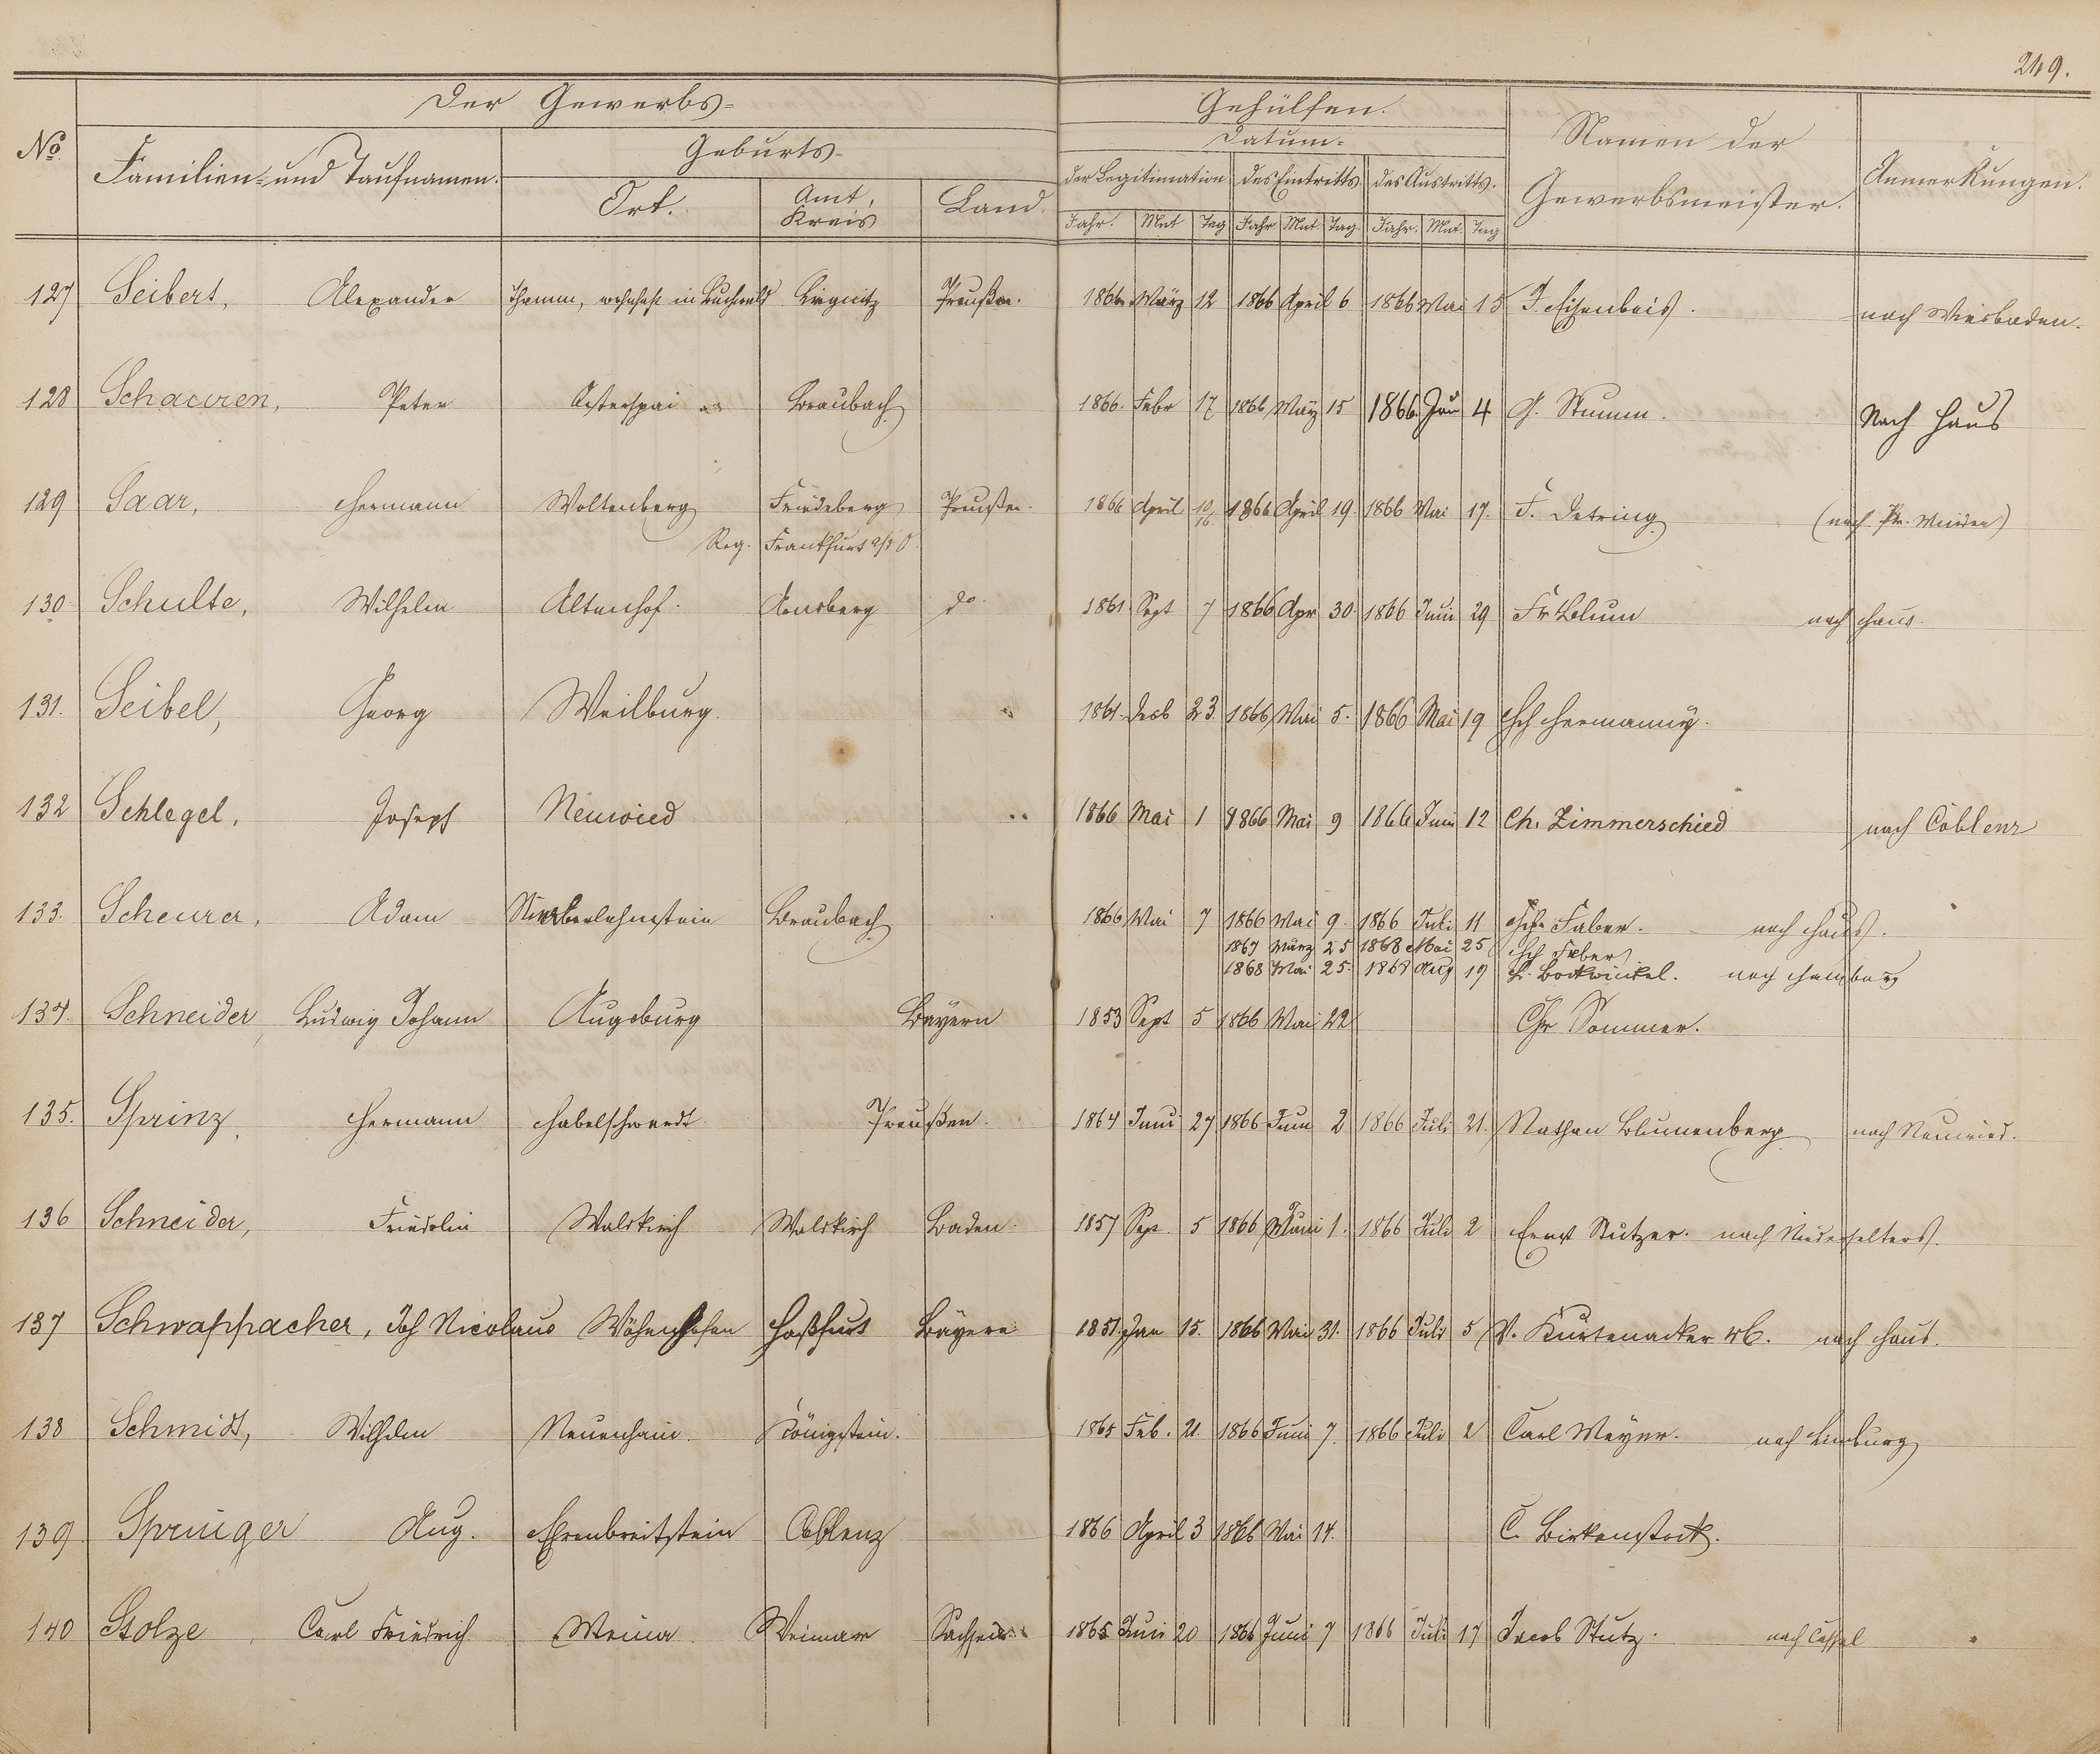 249.
Der Gewerbs-
Gehülfen.
No.
Familien- und Taufnamen.
Geburts-
Datum-
Namen der Gewerbsmeister.
Anmerkungen.
Ort.
Amt, Kreis
Land.
der Legitimation
des Eintritts.
des Austritts.
Jahr. Mnt Tag Jahr Mnt. Tag. Jahr. Mnt. Tag
127 Seibert, Alexander Thamm, wohnhaft in Buchwald Liegnitz Preußen. 1866 März 12 1866 April 6 1866 Mai 15 J. Eisenbeis. nach Wiesbaden.
128 Schauren, Peter Osterspai Braubach 1866. Febr 17 1866 May 15 1866. Jun 4 G. Stumm. Nach Haus
129 Saar, Hermann Woltenberg Friedeberg Preußen. 1866 April 10/16 1866 April 19. 1866 Mai 17. F. Detring (nach Pr. Minden)
Reg. Frankfurt a/d O
130 Schulte, Wilhelm Altenhof. Arnsberg do. 1861 Sept 7 1866 Apr 30 1866 Juni 29 Fr Blum nach Haus.
131. Seibel, Georg Weilburg. 1861. Decb 23. 1866 Mai 5. 1866 Mai 19 Hch Hermanny.
132 Schlegel, Joseph Neuwied 1866 Mai 1 1866 Mai 9 1866 Juni 12 Ch. Zimmerschied nach Coblenz
133. Scheurer, Adam Niederlahnstein Braubach 1866 Mai 7 1866 Mai 9. 1866 Juli 11 Hch. Faber. nach Haus.
1867 März 25 1868 Mai 25 Hch Faber
1868 Mai 25. 1868 Aug 19 H. Bockwinkel. nach Hamburg
134. Schneider, Ludwig Johann Augsburg Bayern 1853 Sept 5 1866 Mai 22 Chr Sommer.
135. Sprinz, Hermann Habelschwerdt Preußen. 1864 Juni 27 1866 Juni 2 1866 Juli 21. Nathan Blumenberg nach Neuwied.
136 Schneider, Fridolin Waldkirch Waldkirch Baden. 1857 Sep. 5 1866 Juni 1. 1866 Juli 2 Ernst Stutzer. nach Niederselters.
137 Schwappacher, Joh Nicolaus Haßfurt Bayern 1851. Jan 15. 1866 Mai 31. 1866 Juli 5 V. Kurtenacker Wb. nach Haus.
138 Schmidt, Wilhelm Neuenhain. Königstein. 1865 Feb. 21. 1866 Juni 7. 1866 Juli 2 Carl Meyer. nach Limburg
139 Springer Aug. Ehrenbreitstein Coblenz 1866 April 3 1866 Mai 14. C. Birkenstock.
140 Stolze, Carl Friedrich Weimar Sachsen 1865 Juni 20 1866 Juni 7 1866 Juli 17 Jacob Stutz. nach Cassel